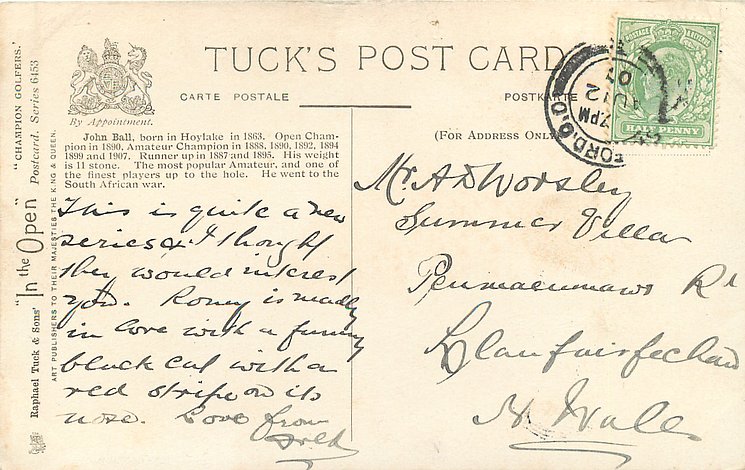 "CHAMPION GOLFERS."
"In the Open" Postcard. Series 6453
Raphael Tuck & Sons'
ART PUBLISHERS TO THEIR MAJESTIES THE KING & QUEEN.
By Appointment.
TUCK'S POST CARD
CARTE POSTALE
POSTKARTE
(FOR ADDRESS ONLY)
John Ball, born in Hoylake in 1863. Open Cham-
pion in 1890, Amateur Champion in 1888, 1890, 1892, 1894
1899 and 1907. Runner up in 1887 and 1895. His weight
is 11 stone. The most popular Amateur, and one of
the finest players up to the hole. He went to the
South African war.
This is quite a new
series & I thought
they would interest
you. Romy is madly
in love with a funny
black cat with a
red stripe on its
nose. Love from
Fred
Mr A D Worsley
Summer Villa
Penmaenmawr Rd
Llanfairfechan
N. Wales
POSTAGE REVENUE
HALF PENNY
FORD. S.O.
7 PM
AU 12